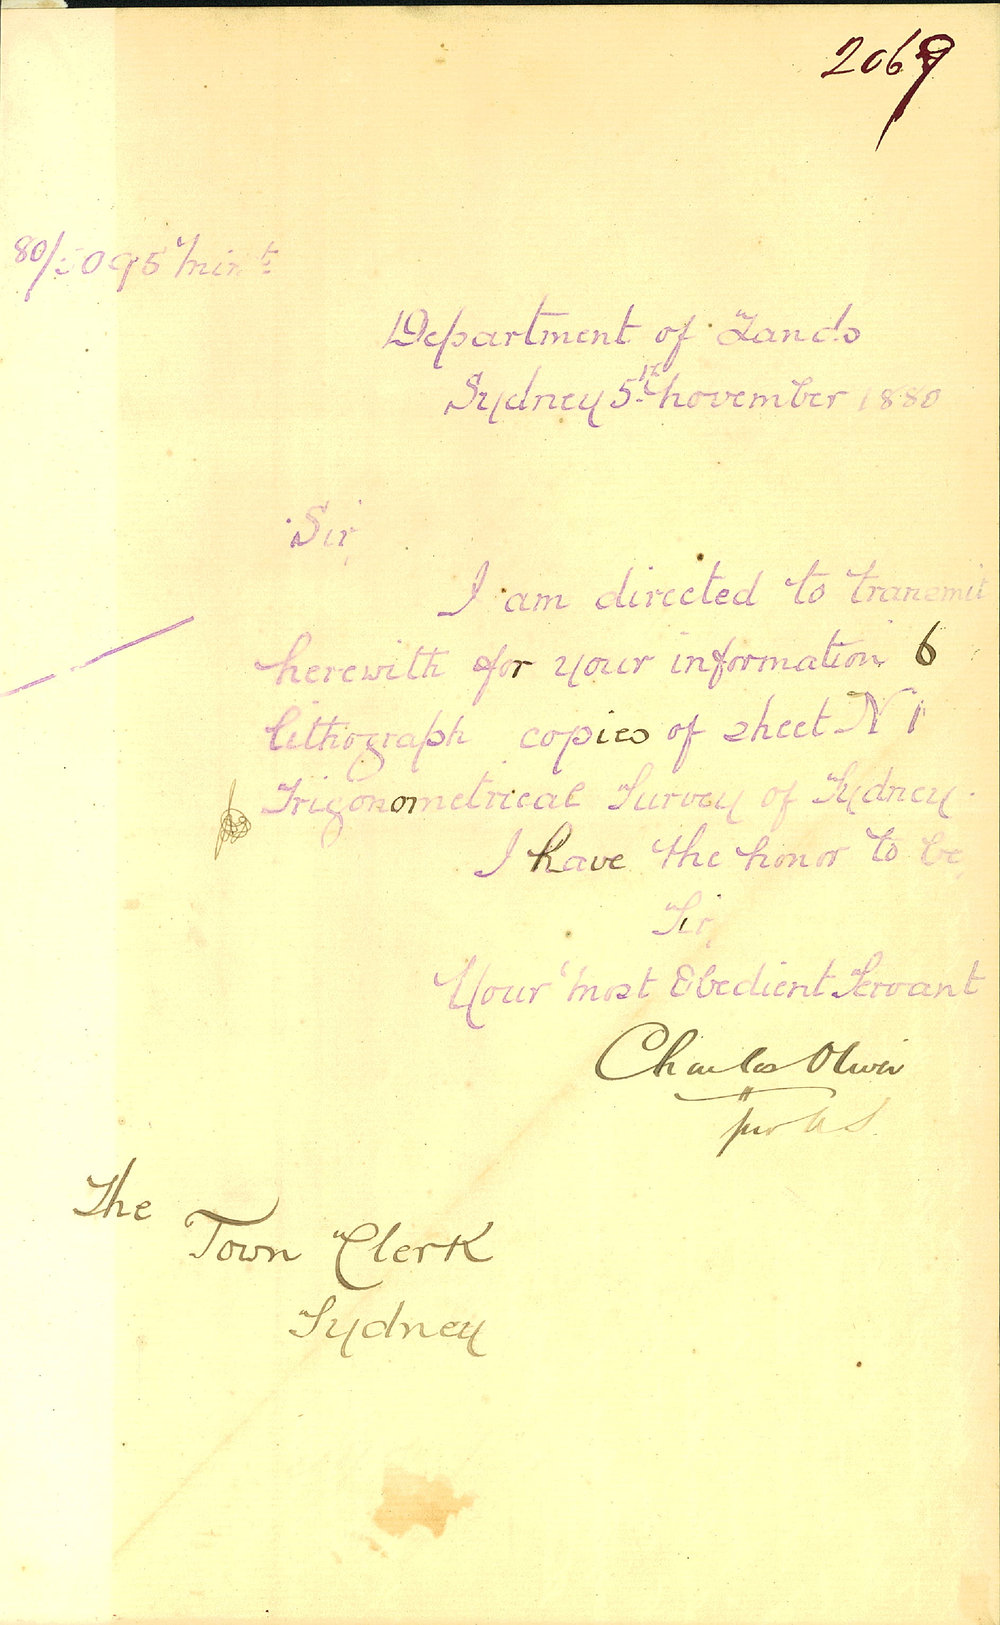 2069
80/5095 Min<sup>t.</sup>
Department of Lands
Sydney 5th November 1880
Sir,
I am directed to transmit
herewith for your information 6
lithograph copies of sheet N 1
Trigonometrical Survey of Sydney.
I have the honor to be,
Sir,
Your Most Obedient Servant
Charles Oliver
for U S
The
Town Clerk
Sydney